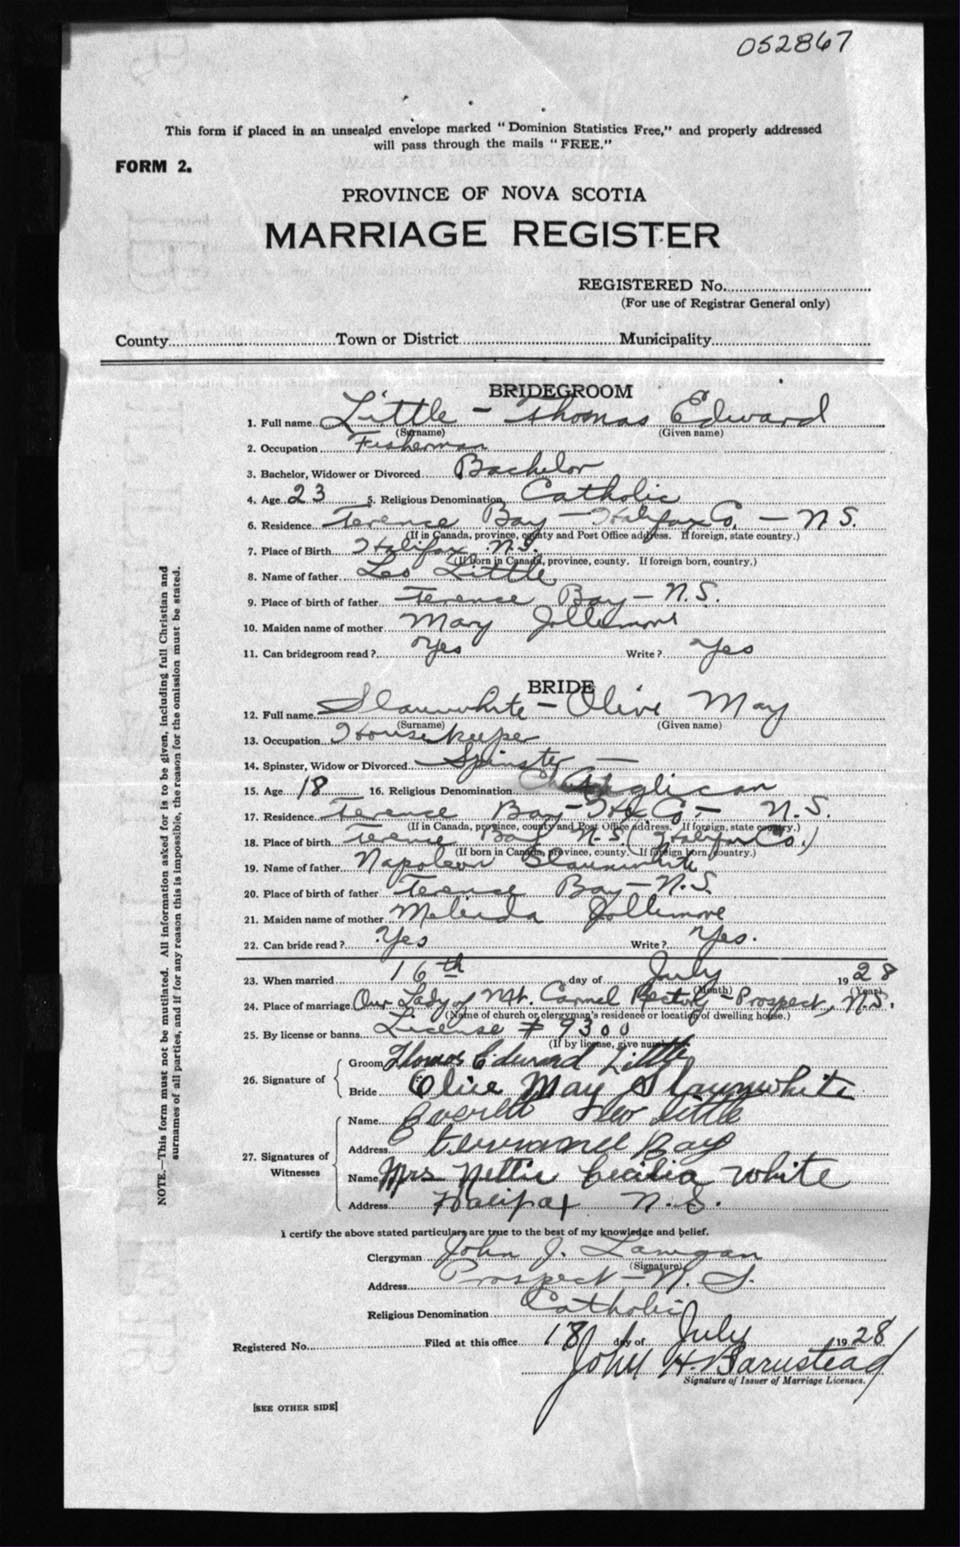 052867
This form if placed in an unsealed envelope marked "Dominion Statistics Free," and properly addressed
will pass through the mails "FREE."
FORM 2.
PROVINCE OF NOVA SCOTIA
MARRIAGE REGISTER
REGISTERED No.
(For use of Registrar General only)
County Town or District Municipality
BRIDEGROOM
1. Full name Little - Thomas Edward
(Surname) (Given name)
2. Occupation Fisherman
3. Bachelor, Widower or Divorced Bachelor
4. Age 23 5. Religious Denomination Catholic
6. Residence Terence Bay - Halifax Co. - N.S.
(If in Canada, province, county and Post Office address. If foreign, state country.)
7. Place of Birth Halifax N.S.
(If born in Canada, province, county. If foreign born, country.)
8. Name of father Leo Little
9. Place of birth of father Terence Bay - N.S.
10. Maiden name of mother Mary Jollimore
11. Can bridegroom read? Yes Write? Yes
BRIDE
12. Full name Slaunwhite - Olive May
(Surname) (Given name)
13. Occupation Housekeeper
14. Spinster, Widow or Divorced Spinster
15. Age 18 16. Religious Denomination Anglican
17. Residence Terence Bay - Hfx. Co. - N.S.
(If in Canada, province, county and Post Office address. If foreign, state country.)
18. Place of birth Terence Bay N.S. (Halifax Co.)
(If born in Canada, province, county. If foreign born, country.)
19. Name of father Napoleon Slaunwhite
20. Place of birth of father Terence Bay - N.S.
21. Maiden name of mother Melinda Jollimore
22. Can bride read? Yes Write? Yes.
23. When married 16th day of July 1928
(Month) (Year)
24. Place of marriage Our Lady of Mt. Carmel Rectory - Prospect, N.S.
(Name of church or clergyman's residence or location of dwelling house.)
25. By license or banns License # 9300
(If by license, give number)
26. Signature of
Groom Thomas Edward Little
Bride Olive May Slaunwhite
27. Signatures of Witnesses
Name Everett Little
Address Terrance Bay
Name Mrs Nettie Cecilia White
Address Halifax N.S.
I certify the above stated particulars are true to the best of my knowledge and belief.
Clergyman John J. Lanigan
(Signature)
Address Prospect - N.S.
Religious Denomination Catholic
Registered No. Filed at this office 18 day of July 1928
John H. Barnstead
Signature of Issuer of Marriage Licenses.
[SEE OTHER SIDE]
NOTE.—This form must not be mutilated. All information asked for is to be given, including full Christian and
surnames of all parties, and if for any reason this is impossible, the reason for the omission must be stated.